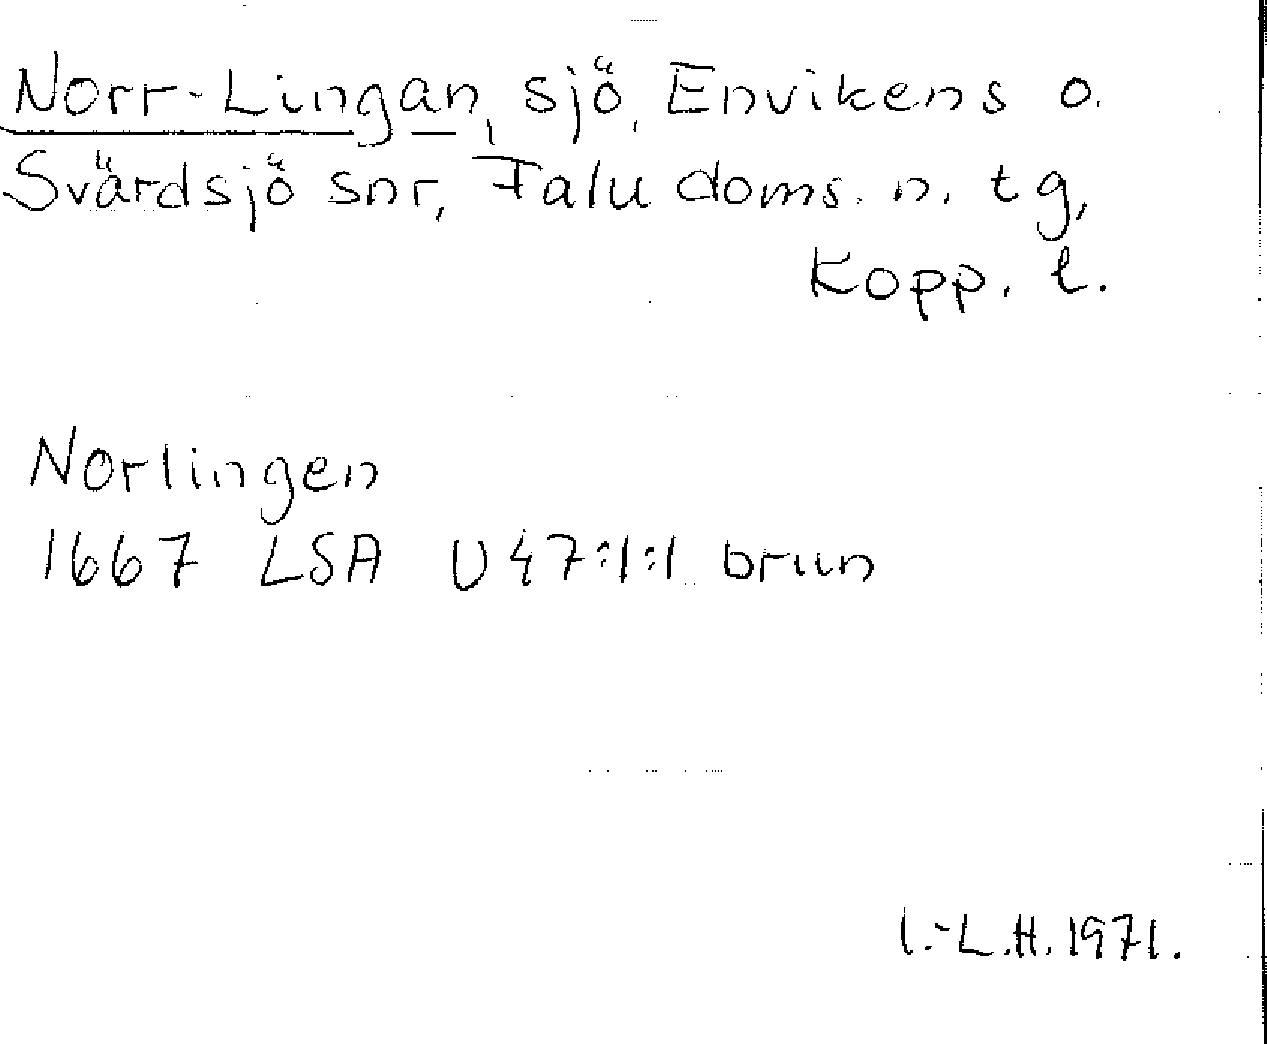 Norr-Lingan, sjö, Envikens o.
Svärdsjö snr, Falu doms. n. tg,
Kopp. l.
Norlingen
1667 LSA U47:1:1 brun
I.-L.H. 1971.